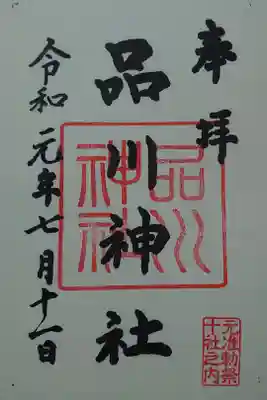 奉拝
品川神社
令和元年七月十一日
品川神社
元准勅祭
十社之内